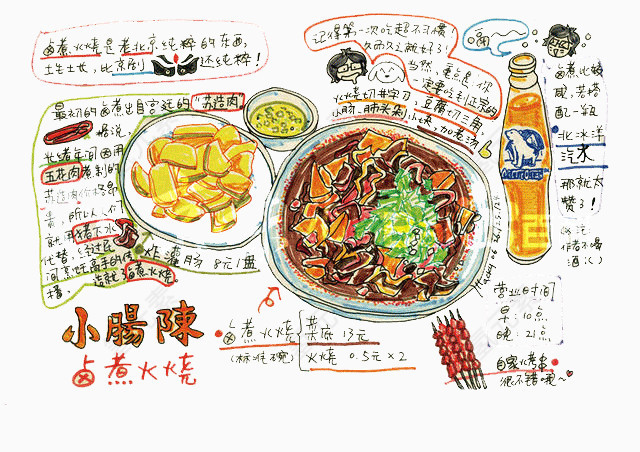 卤煮火烧是老北京纯粹的东西,
土生土长,比京剧 还纯粹!
记得第一次吃超不习惯!
久而久之就好了!
当然,重点是,你
一定要吃到正宗的
火烧切井字刀,豆腐切三角,
小肠、肺头剁小块,加老汤
最初的卤煮出自宫廷的"苏造肉"
据说,
光绪年间因用
五花肉煮制的
苏造肉价格昂
贵,所以人们
就用猪下水
代替,经过民
间烹饪高手的传
播,造就了卤煮火烧。
炸灌肠 8元/盘
卤煮比较
咸,若搭
配一瓶
北冰洋
汽水
那就太
赞了!
吹泡:
作者不喝
酒
小腸陳
卤煮火烧
卤煮火烧
(标准碗)
菜底 13元
火烧 0.5元×2
营业时间
早:10点
晚:21点
自家小烤串
很不错哦~